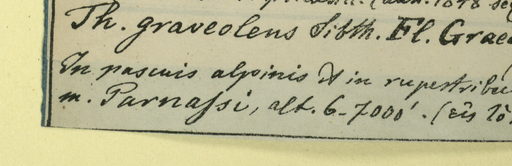 Th. graveolens Sibth. Fl. Graec
In pascuis alpinis & in rupestribu
m. Parnassi, alt. 6-7000'. (εἰς